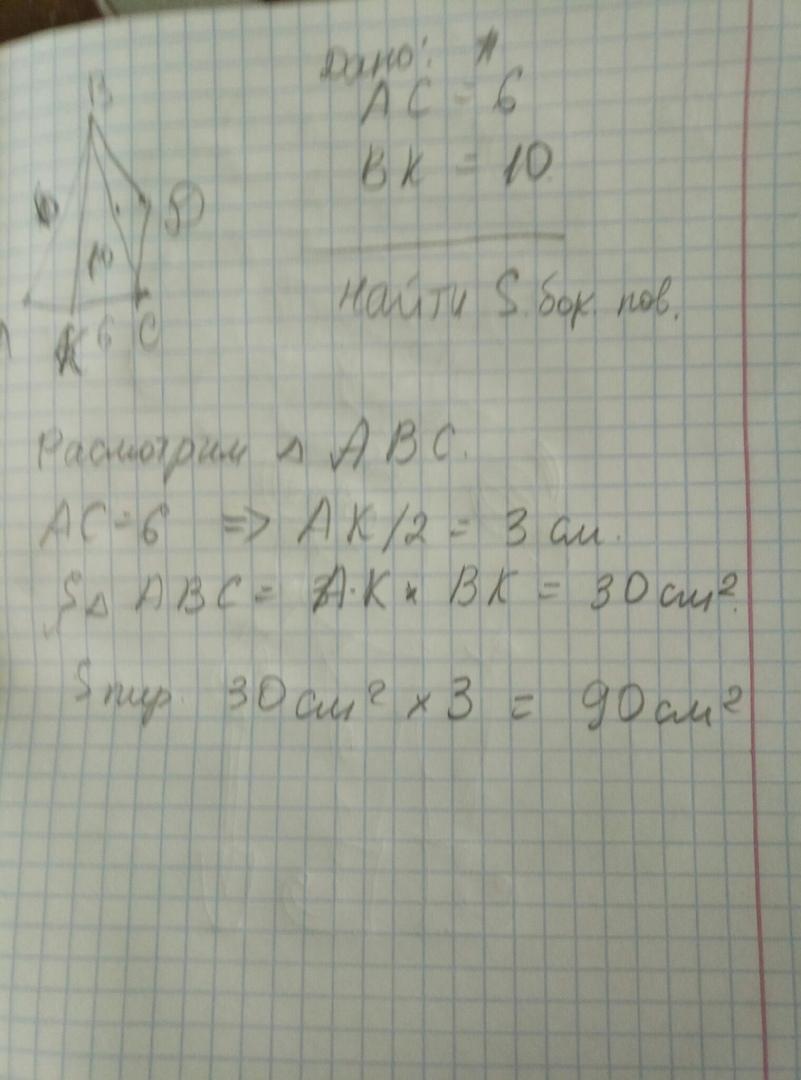 Дано:
AC = 6
BK = 10
Найти S. бок. пов.
B
D
10
K 6 C
Расмотрим △ ABC.
AC = 6 => AK/2 = 3 см.
S△ ABC = A·K × BK = 30 см².
S пир. 30 см² × 3 = 90 см²